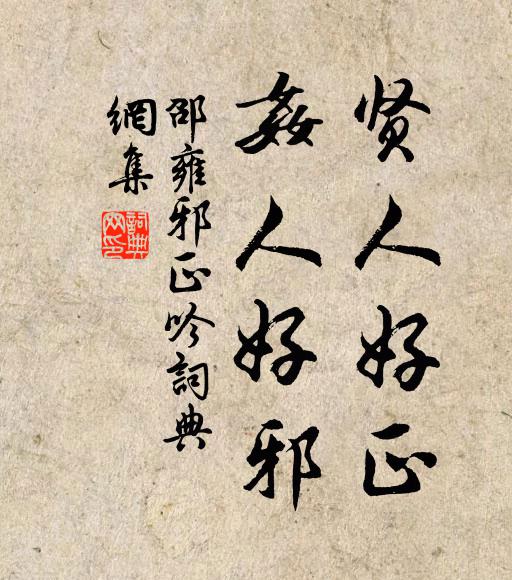 贤人好正
姦人好邪
邵雍邪正吟詞典
網集
詞典
网印